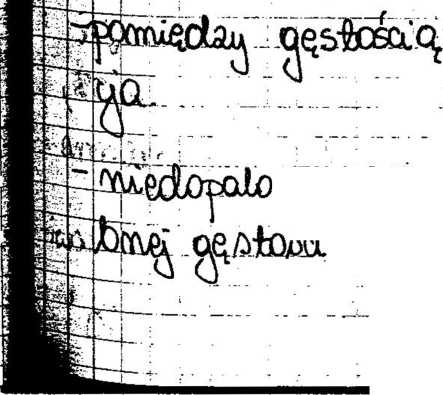 - pomiędzy gęstością
ja
- niedopało
lonej gęstości